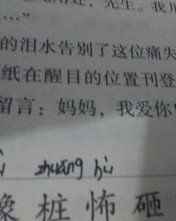 …"
的泪水告别了这位痛失
纸在醒目的位置刊登
留言：妈妈，我爱你
zhuāng bù
桩 怖 砸